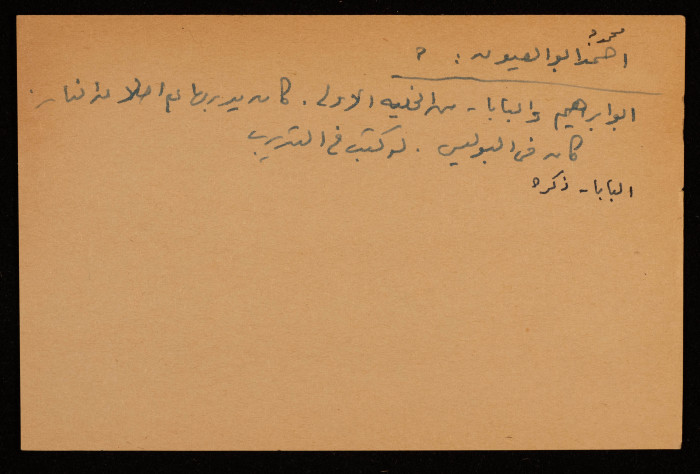 محمود
احمد ابو العيون : ؟
ابو ابراهيم والبابا - من الخليه الاولى . كان يدربها على اطلاق النار .
كان في البوليس . له كتب في التدريب
البابا - ذكره